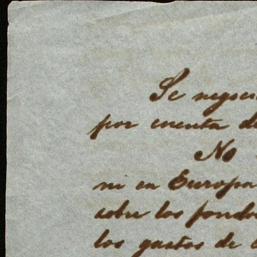 Se negoci
por cuenta de
No
ni en Europa
sobre los fondo
los gastos de